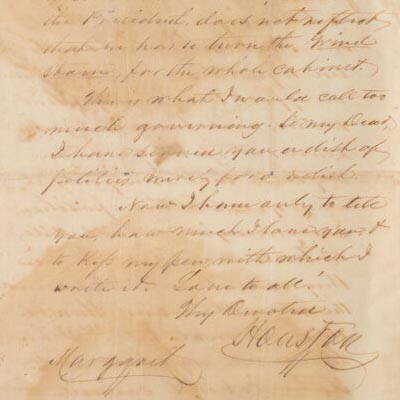 the President, does not reflect
that one has to turn the Wind
, for the whole cabinet.
This is what I would call too
much governing. So my Dear,
I have served you a dish of
politics, merely for a relish.
Now I have only to tell
you, how much I love you, &
to kiss my pen with which I
write it. Love to all.
Thy Devoted
Houston
Margaret